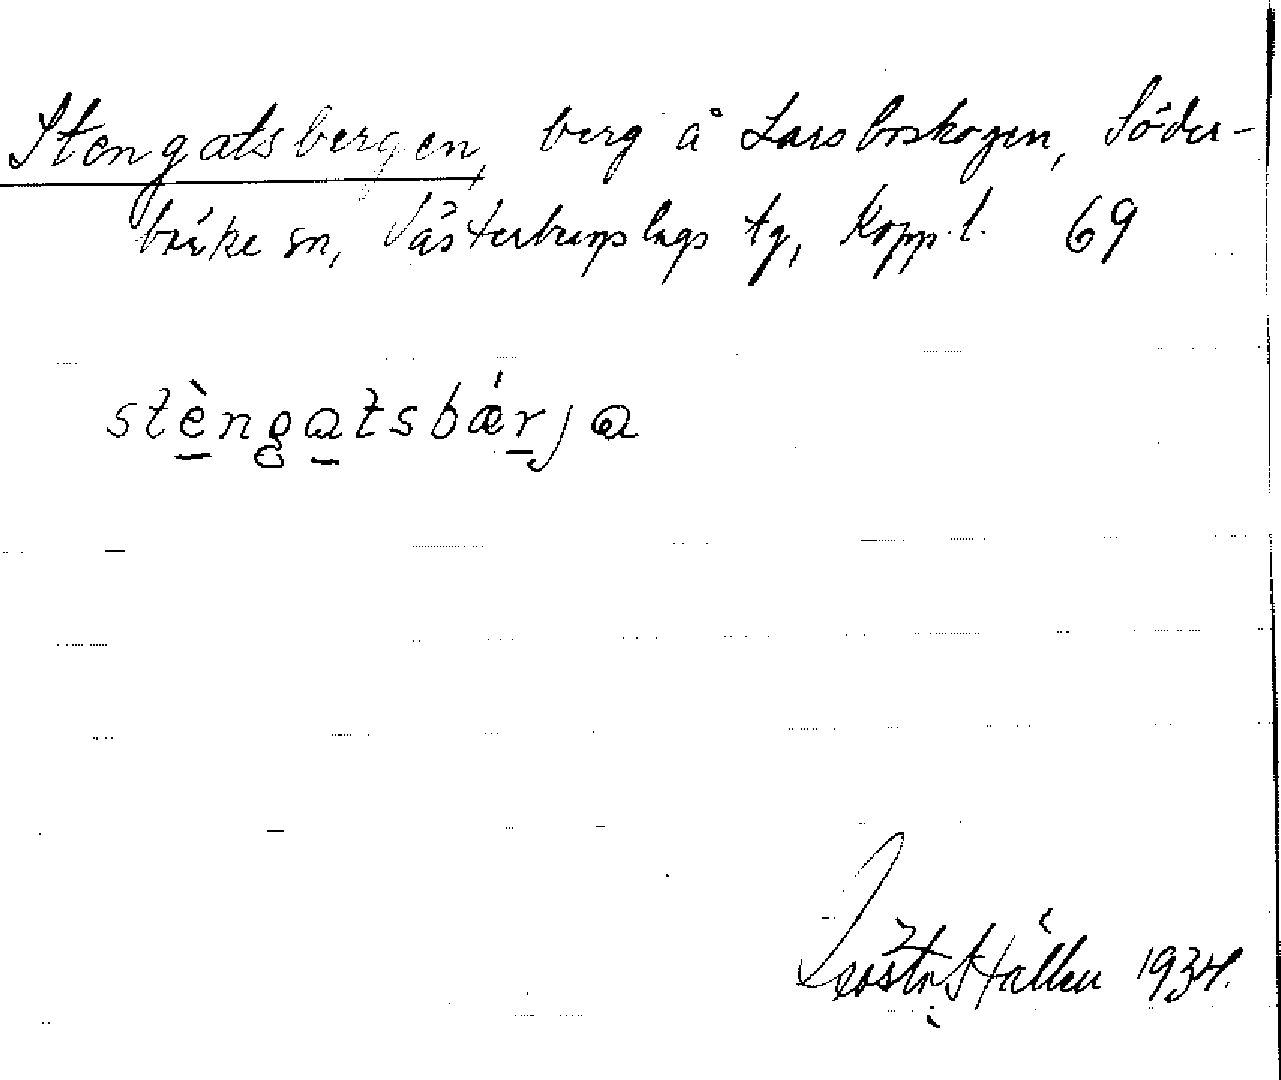 Stengatsbergen, berg å Larsboskogen, Söder-
bärke sn, Västerbergslags tg, Kopp. l. 69
stèngatsbǽrja
Gösta Hallén 1934.